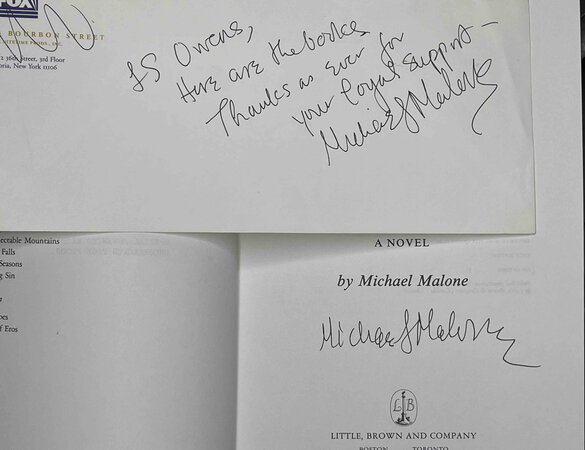 FOX
BOURBON STREET
36th Street, 3rd Floor
oria, New York 11106
LS Owens,
Here are the books
Thanks as ever for
your loyal support -
Michael Malone
ectable Mountains
Falls
Seasons
g Sin
of Eros
A NOVEL
by Michael Malone
Michael Malone
L B
LITTLE, BROWN AND COMPANY
BOSTON TORONTO